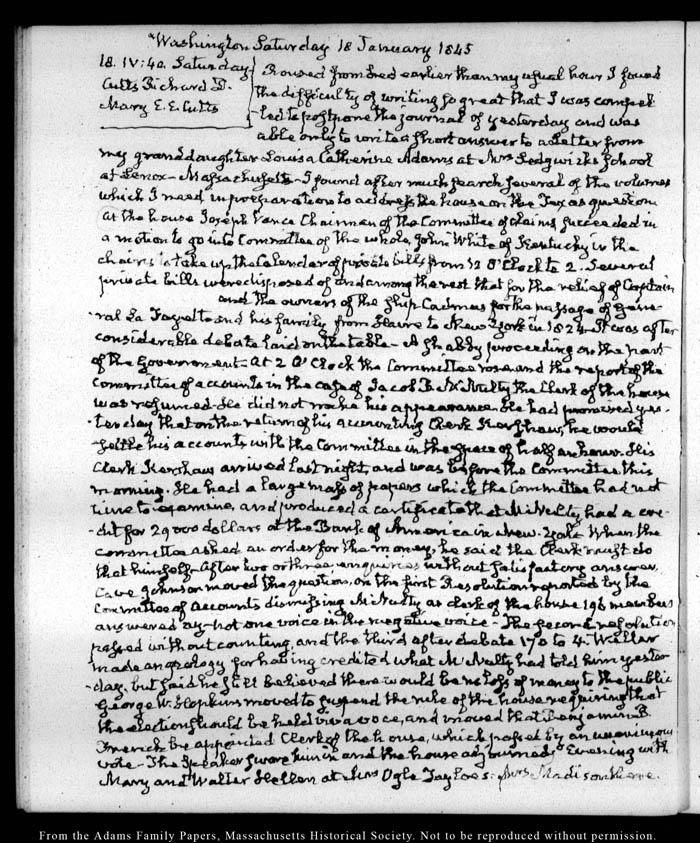 Washington Saturday 18 January 1845
18. IV:40. Saturday
Cutts Richard D.
Mary E. E. Cutts
Roused from bed earlier than my usual hour I found
the difficulty of writing so great that I was compel-
-led to postpone the journal of yesterday and was
able only to write a short answer to a Letter from
my granddaughter Louisa Catherine Adams at Mrs Sedgwick's School
at Lenox - Massachusetts - I found after much search several of the volumes
which I need in preparation to address the house on the Texas question
At the house Joseph Vance Chairman of the Committee of claims succeeded in
a motion to go into Committee of the whole, John White of Kentucky in the
chair to take up the Calendar of private bills from 12 O'Clock to 2. Several
private bills were disposed of and among the rest that for the relief of Captain
and the owners of the ship Cadmus for the passage of Gene-
ral La Fayette and his family from Havre to New York in 1824. It was after
considerable debate laid on the table - A shabby proceeding on the part
of the Government - At 2 O'Clock the Committee rose and the report of the
Committee of accounts in the case of Jacob B. McNulty the Clerk of the house
was resumed. He did not make his appearance. He had promised yes-
-terday that on the return of his accounting Clerk Kershaw, he would
settle his accounts with the Committee in the space of half an hour. His
Clerk Kershaw arrived last night, and was before the Committee this
morning. He had a large mass of papers which the Committee had not
time to examine, and produced a certificate that McNulty had a cre-
-dit for 29000 dollars at the Bank of America in New-York When the
committee asked an order for the money, he said the Clerk must do
that himself - After two or three enquiries without satisfactory answer
Cave Johnson moved the question, on the first Resolution reported by the
Committee of Accounts dismissing McNulty as clerk of the house 196 members
answered ay - not one voice in the negative voice - The second resolution
passed without counting, and the third after debate 170 to 4. Weller
made an apology for having credited what McNulty had told him yester-
-day, but said he still believed there would be no loss of money to the public
George W. Hopkins moved to suspend the rule of the house requiring that
the election should be held viva voce, and moved that Benjamin B.
French be appointed Clerk of the house, which passed by an unanimous
vote - The Speaker swore him in and the house adjourned. Evening with
Mary and Walter Hellen at Mrs Ogle Tayloe's. Mrs Madison there.
From the Adams Family Papers, Massachusetts Historical Society. Not to be reproduced without permission.